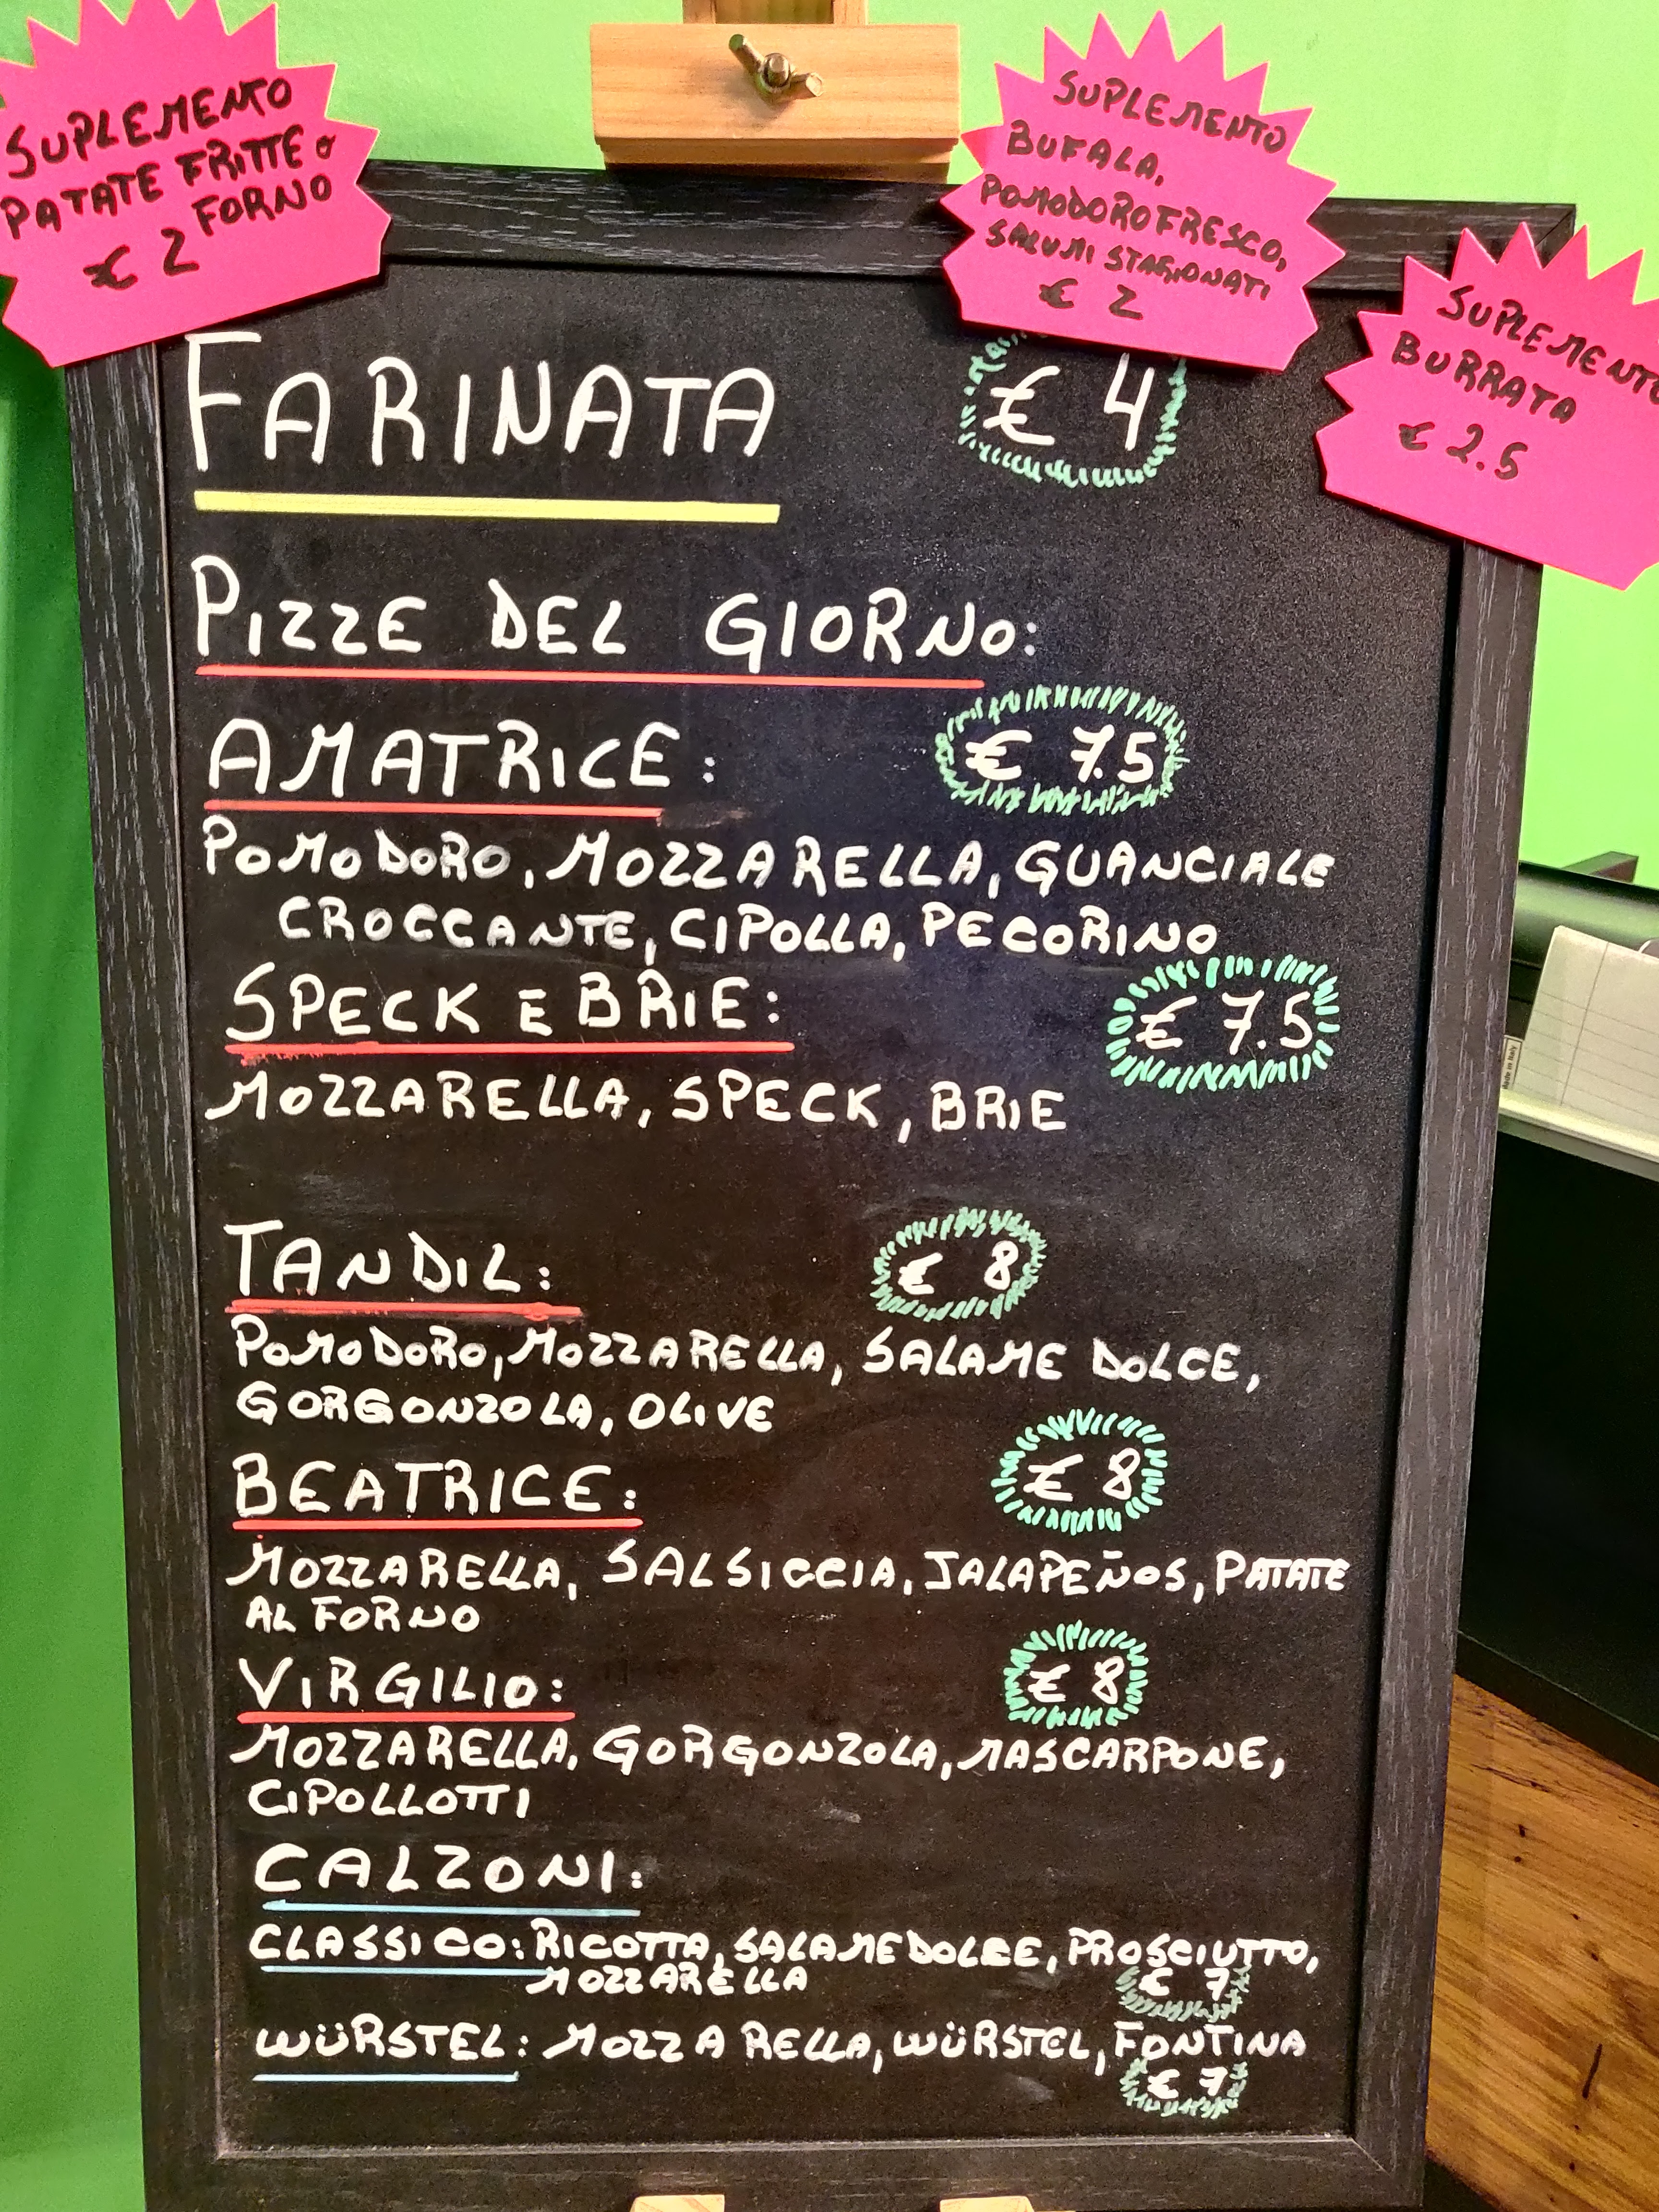 SUPLEMENTO
PATATE FRITTE O
FORNO
€ 2
SUPLEMENTO
BUFALA,
POMODORO FRESCO,
SALUMI STAGIONATI
€ 2
SUPLEMENTO
BURRATA
€ 2.5
FARINATA € 4
PIZZE DEL GIORNO:
AMATRICE: € 7.5
POMODORO, MOZZARELLA, GUANCIALE
CROCCANTE, CIPOLLA, PECORINO
SPECK E BRIE: € 7.5
MOZZARELLA, SPECK, BRIE
TANDIL: € 8
POMODORO, MOZZARELLA, SALAME DOLCE,
GORGONZOLA, OLIVE
BEATRICE: € 8
MOZZARELLA, SALSICCIA, JALAPEÑOS, PATATE
AL FORNO
VIRGILIO: € 8
MOZZARELLA, GORGONZOLA, MASCARPONE,
CIPOLLOTTI
CALZONI:
CLASSICO: RICOTTA, SALAME DOLCE, PROSCIUTTO,
MOZZARELLA € 7
WÜRSTEL: MOZZARELLA, WÜRSTEL, FONTINA
€ 7
Made in Italy